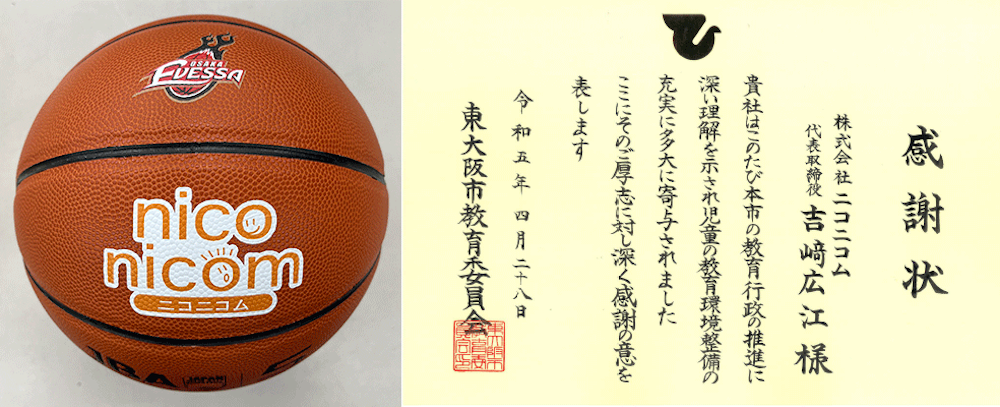 OSAKA
EVESSA
nico
nicom
ニコニコム
JAPAN
感謝状
株式会社ニコニコム
代表取締役 吉﨑広江 様
貴社はこのたび本市の教育行政の推進に
深い理解を示され児童の教育環境整備の
充実に多大に寄与されました
ここにそのご厚志に対し深く感謝の意を
表します
令和五年四月二十八日
東大阪市教育委員会